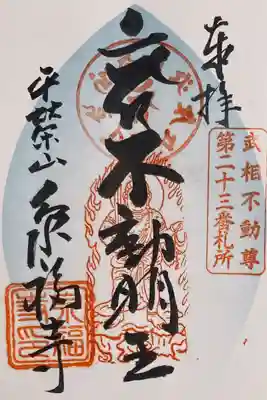 奉拝
武相不動尊
第二十三番札所
不動明王
平栄山 泉福寺